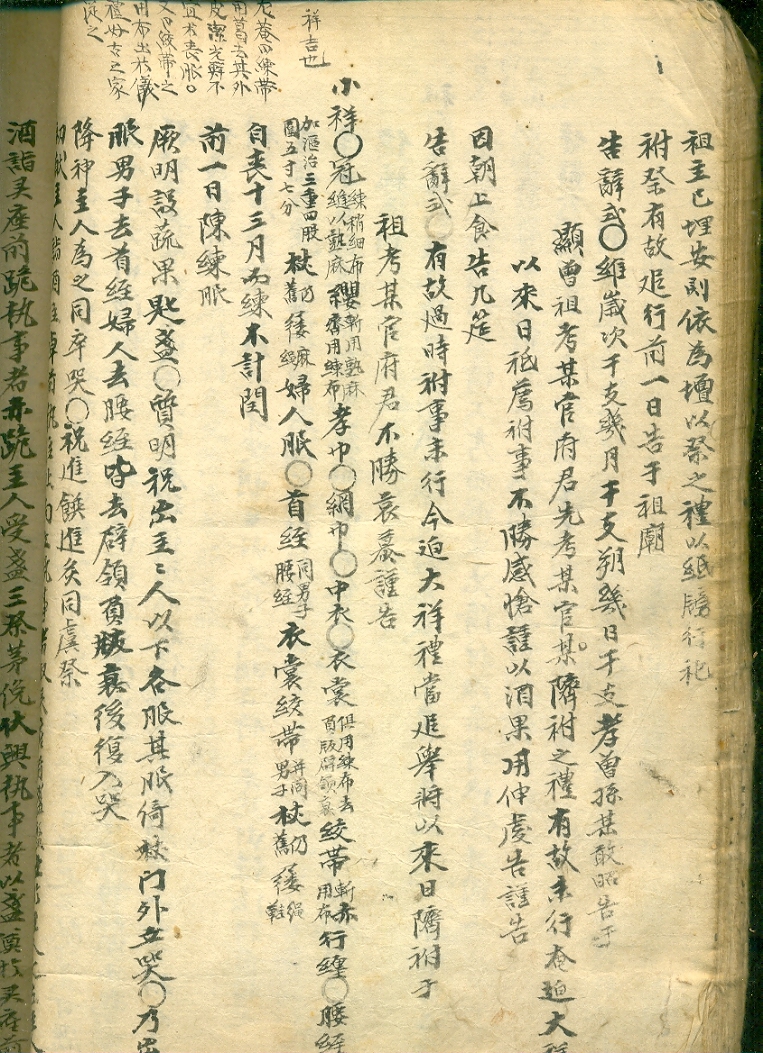 祖主已埋安則依爲壇以祭之禮以紙牓行祀
祔祭有故追行前一日告于祖廟
告辭式○維歲次干支幾月干支朔幾日干支孝曾孫某敢昭告于
顯曾祖考某官府君先考某官某隮祔之禮有故未行奄迫大祥
以來日祗薦祔事不勝感愴謹以酒果用伸虔告謹告
因朝上食告几筵
告辭式○有故過時祔事未行今迫大祥禮當追擧將以來日隮祔于
祖考某官府君不勝哀慕謹告
小祥○冠練稍細布維以熟麻纓斬用熟麻齊用練布孝巾○網巾○中衣○衣裳俱用練布去負版辟領衰絞帶斬亦用布行纏○腰絰
加漚治三重四股圍五寸七分杖仍舊麻婦人服○首絰腰絰同男子衣裳絞帶并同男子杖仍舊繩鞋
自喪十三月而練不計閏
前一日陳練服
厥明設蔬果匙盞○質明祝出主主人以下各服其服倚杖門外立哭○乃出
服男子去首絰婦人去腰絰皆去辟領負版衰後復入哭
降神主人爲之同卒哭○祝進饌進炙同虞祭
初獻主人詣
酒詣灵座前跪執事者亦跪主人受盞三祭茅俛伏興執事者以盞奠故灵座前
祥吉也
尤菴曰練帶
用葛去其外
皮潔光鮮不
宜於喪服○
又曰絞帶之
用布出於儀
禮好古之家
從之